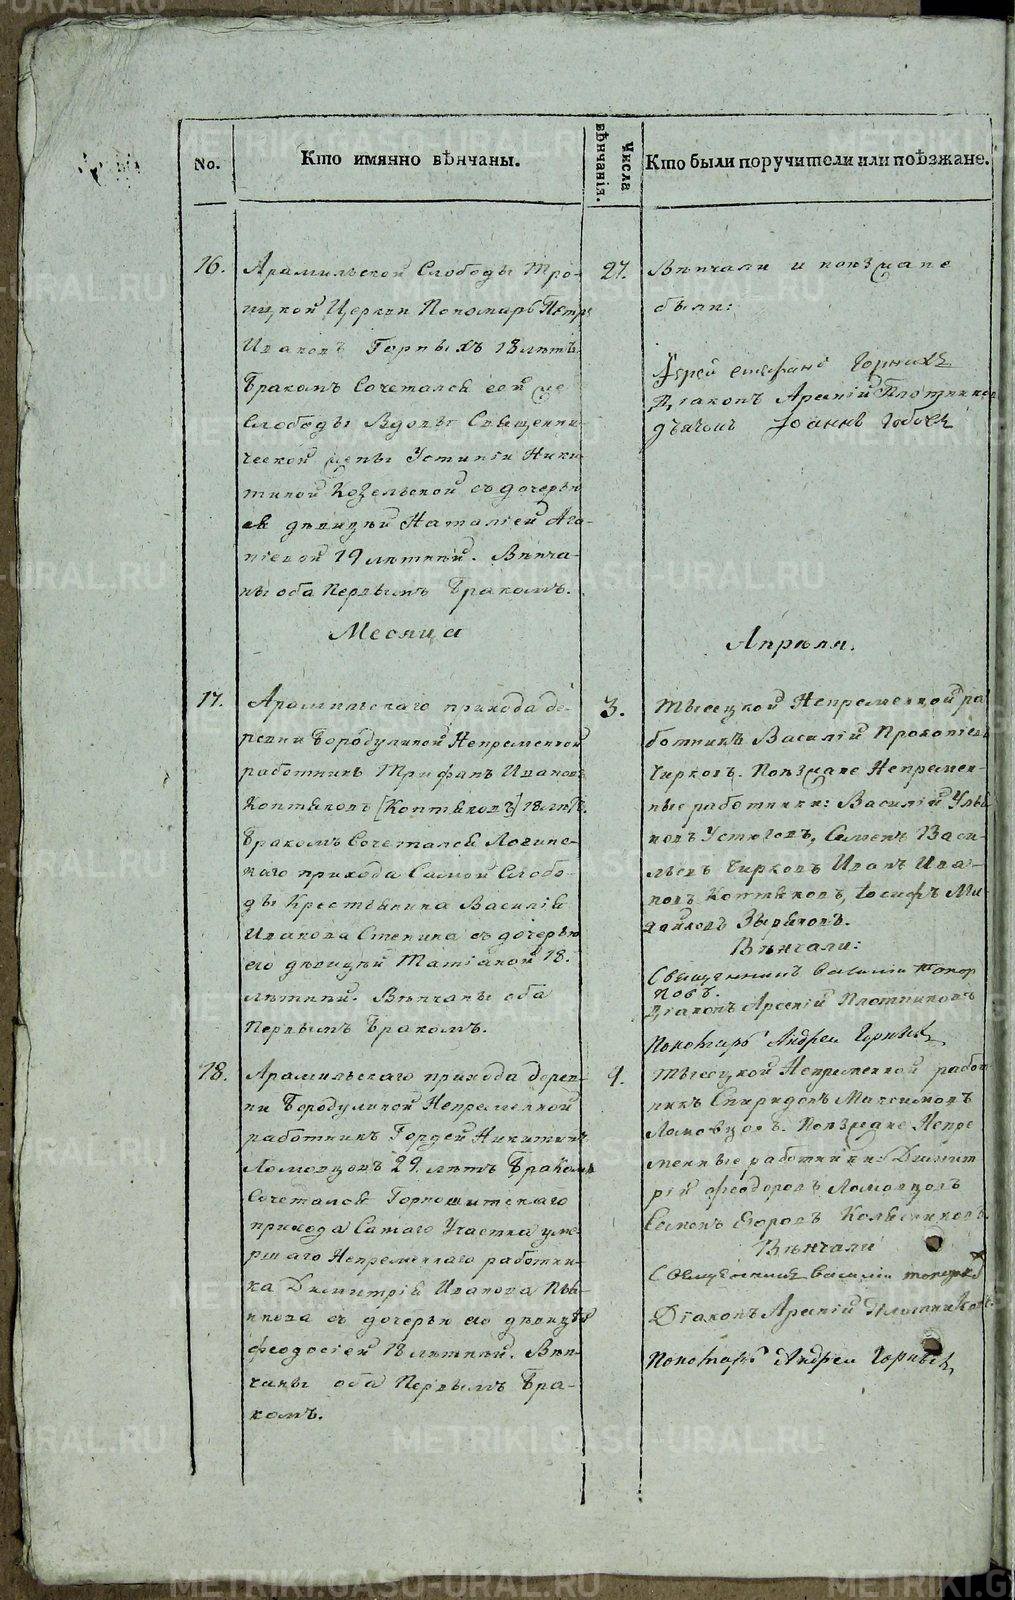 No.
Кто имянно вѣнчаны.
Числа вѣнчанія.
Кто были поручители или поѣзжане.
16.
Арамильской Слободы Тро-
ицкой Церкви Пономарь Петръ
Ивановъ Горныхъ 18 лѣтъ
Бракомъ Сочетался сей же
Слободы Вдовы Священни-
ческой жены Устиніи Ники-
тиной Козельской съ дочерью
ея дѣвицей Наталіей Ага-
піевой 19 лѣтней. Вѣнча-
ны оба Первымъ Бракомъ.
27.
Вѣнчали и поезжане
были:
Іерей Стефанъ Горныхъ
Діаконъ Арсеній Плотников
дьячокъ Іоаннъ
Месяца
Апрѣля.
17.
Арамильскаго прихода де-
ревни Бородулиной Непременной
работникъ Трифанъ Ивановъ
Коптяковъ [Коптяковъ] 18 лѣтъ.
Бракомъ Сочетался Логинов-
скаго прихода Самой Слобо-
ды Крестьянина Василія
Иванова Стенина съ дочерью
его дѣвицей Татіаной 18.
лѣтней. Вѣнчаны оба
Первымъ Бракомъ.
3.
Тысецкой Непременной ра
ботникъ Василій Прокопіевъ
Чирковъ. Поезжане Непремен-
ные работники: Василій Улья
новъ Устюговъ, Семенъ Васи-
льевъ Чирковъ Иванъ Ива-
новъ Коптяковъ, Іосифъ Ми
хайловъ Зыряновъ.
Вѣнчали:
Священникъ Василій Топор
ковъ.
Діаконъ Арсеній Плотниковъ
Пономарь Андрей Горныхъ
18.
Арамильскаго прихода дерев-
ни Бородулиной Непременной
работникъ Гордей Никитинъ
Ломовцовъ 29. лѣтъ Бракомъ
Сочетался Горнощитскаго
прихода Самаго Участка уме-
ршаго Непременнаго работни-
ка Димитрія Иванова Пья-
нкова съ дочерью его дѣвицей
Феодосіей 18 лѣтней. Вѣн-
чаны оба Первымъ Бра-
комъ.
9.
Тысецкой Непременной работ
никъ Спиридонъ Максимовъ
Ломовцовъ. Поезжане Непре
менные работники: Димит
рій Феодоровъ Ломовцовъ
Семенъ Егоровъ Колясниковъ.
Вѣнчали
Священникъ Василій Топорковъ
Діаконъ Арсеній Плотниковъ.
Пономарь Андрей Горныхъ
METRIKI.GASO-URAL.RU